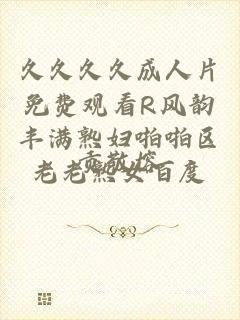 久久久久成人片
免费观看R风韵
丰满熟妇啪啪区
老老熟女百度